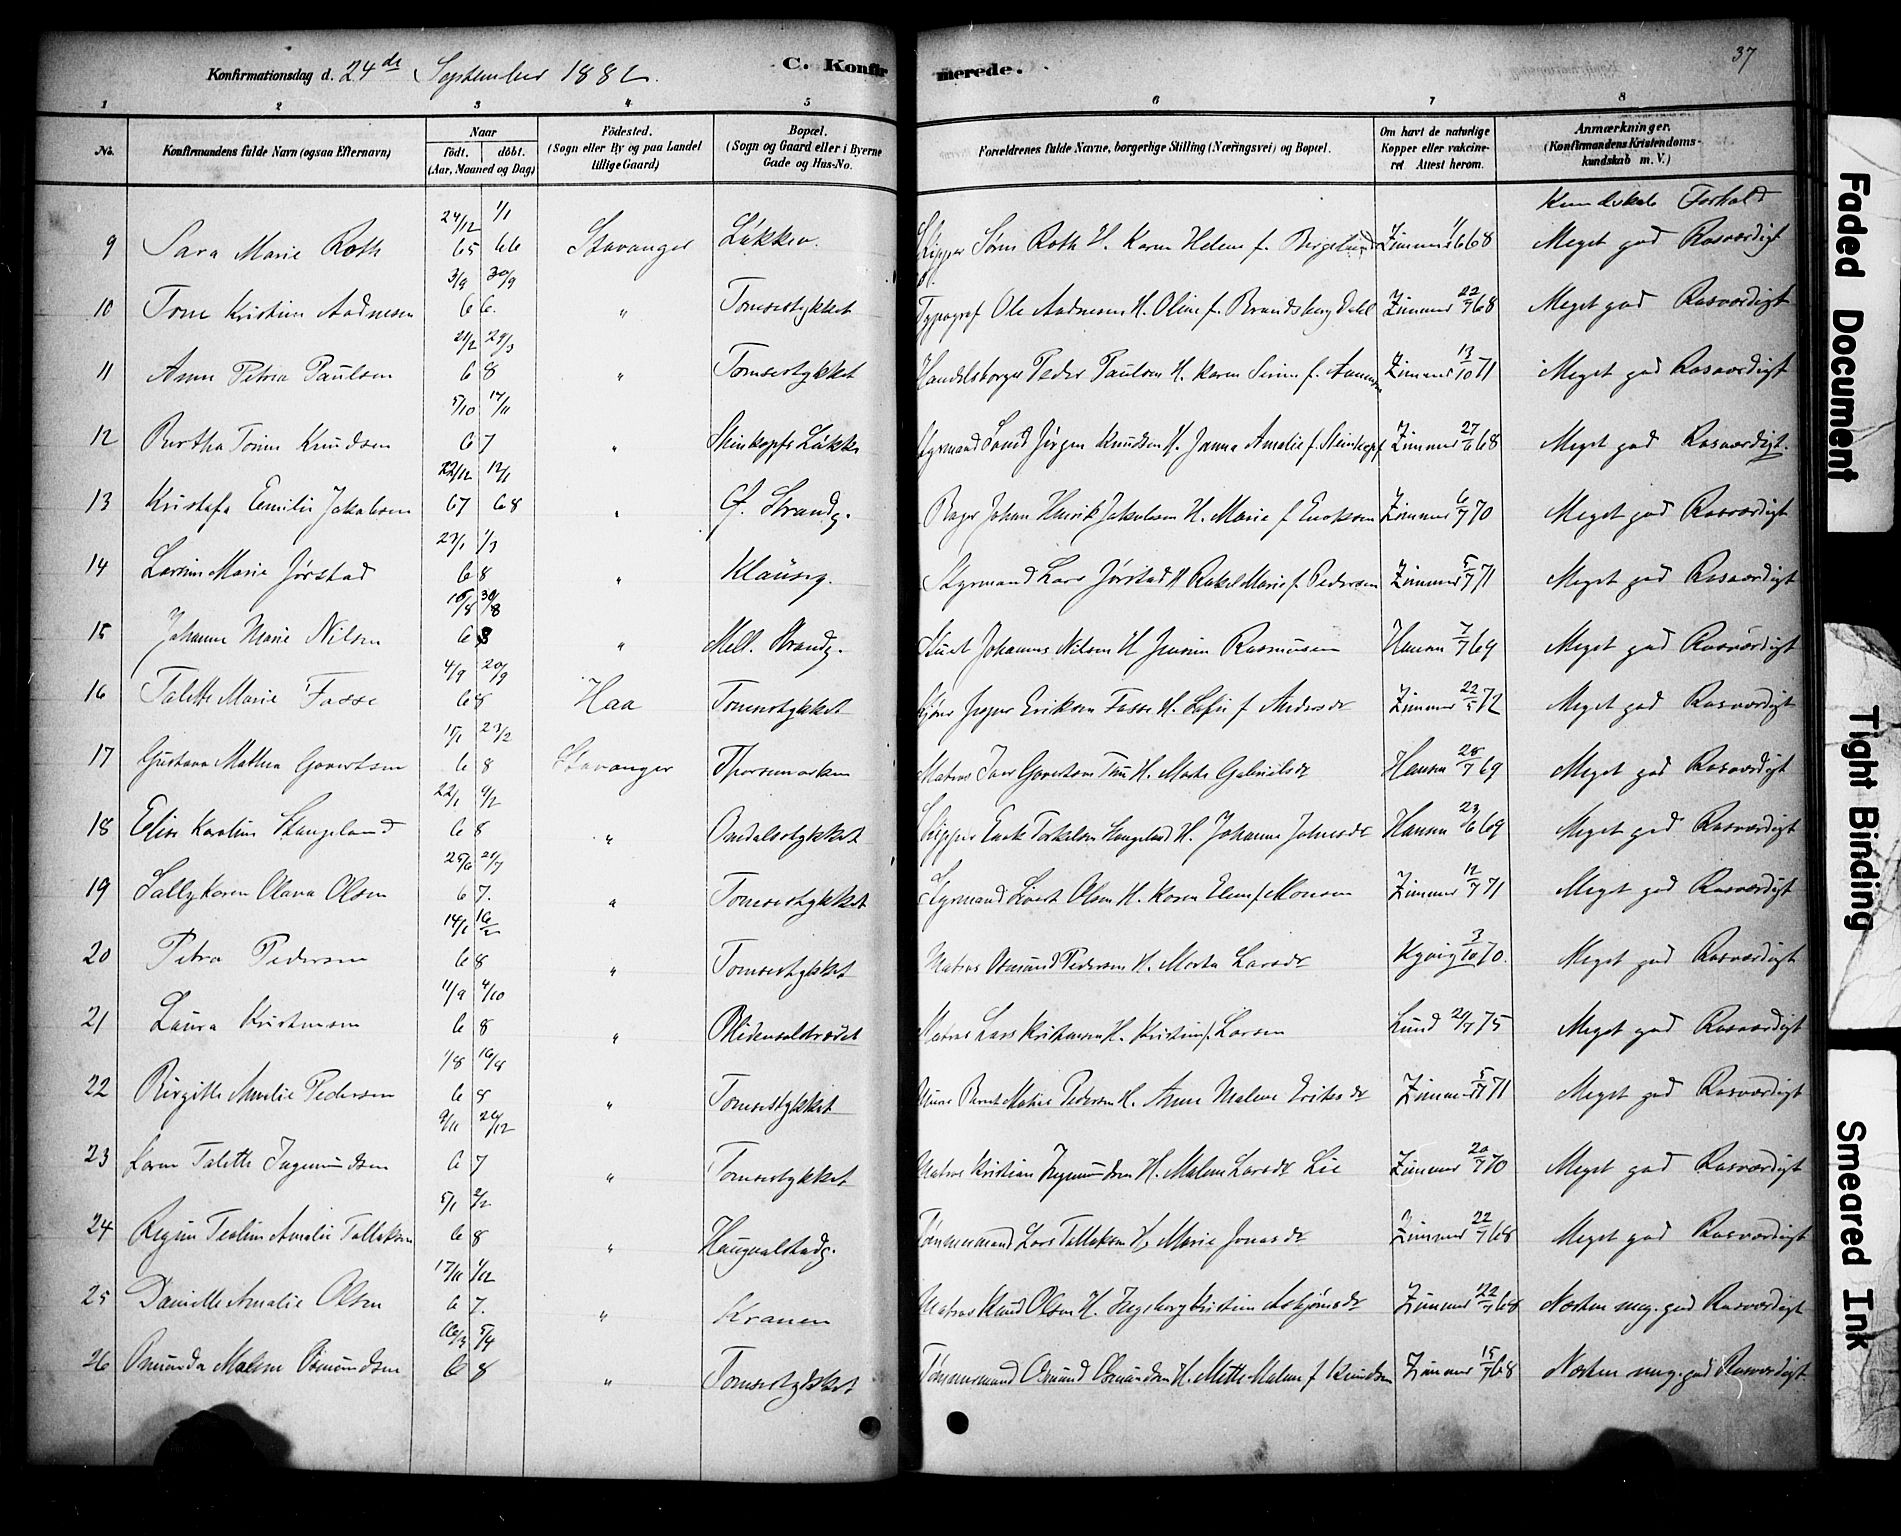 Konfirmationsdag d. 24de September 1882. C. Konfirmerede. 37
1 2 3 4 5 6 7 8
No. Konfirmandens fulde Navn (ogsaa Efternavn) Naar födt. döbt. (Aar, Maaned og Dag) Födested. (Sogn eller By og paa Landet tillige Gaard) Bopæl. (Sogn og Gaard eller i Byerne Gade og Hus-No. Forældrenes fulde Navne, borgerlige Stilling (Næringsvei) og Bopæl. Om havt de naturlige Kopper eller vakcineret Attest herom. Anmærkninger. (Konfirmandens Kristendomskundskab m. V.)
Kundskab Forhold
9 Sara Marie Roth 24/12 65 1/1 66 Stavanger Løkkev. Skipper Søren Roth H. Karen Helene f. Zimmer 68 Meget god Rosværdigt
10 Tone Kristine Aadnesen 3/9 30/9 66. " Tomsestykket Typograf Ole Aadnesen H. Oline f. Zimmer 22/7 68 Meget god Rosværdigt
11 Anne Petrea Paulsen 3 68 " Tomsestykket Handelsborger Peder Paulsen H. Karen Serine f. Zimmer 13/10 71 Meget god Rosværdigt
12 Bertha Tomine Knudsen 5/10 17/11 67 " Steinkopfs Løkke Styrmand Jørgen Knudsen H. Janna Amalie f. Steinkopf Zimmer 27/6 68 Meget god Rosværdigt.
13 Kristofa Emilie Jakobsen 22/12 67 12/1 68 " Ø. Strandg. Bager Johan Henrik Jakobsen H. Marie f. Zimmer 6/7 70 Meget god Rosværdigt
14 Larsine Marie Jørstad 23/1 1/3 68 " Klausg. Styrmand Lars Jørstad H Rakel Marie f. Pedersen Zimmer 5/7 71 Meget god Rosværdigt
15 Johanne Marie Nilsen 15/8 30/8 68 " Mell. Strandg. Johannes Nilsen H Rasmussen Hansen 7/7 69 Meget god Rosværdigt
16 Talette Marie Fosse 4/9 20/9 68 Haa Tomsestykket Jesper Eriksen Fosse H. Sofie f. Zimmer 22/5 72 Meget god Rosværdigt
17 Gustava Mathea Govertsen 15/1 23/2 68 Stavanger Thorsmarken Matros Govertsen H. Marte Gabrielsdr Hansen 28/7 69 Meget god Rosværdigt
18 Elise Karoline Stangeland 22/1 9/2 68 " Omdalsstykket Skipper Torkelsen Stangeland H. Johanne Hansen 23/6 69 Meget god Rosværdigt
19 Sally Karen Olava Olsen 25/6 67. " Tomsestykket Styrmand Olsen H. Karen f. Monsen Zimmer 12/7 71 Meget god Rosværdigt
20 Petra Pedersen 14/1 16/2 68 " Tomsestykket Matros Osmund Pedersen H. Marta Larsdr Kyvig 3/10 70. Meget god Rosværdigt
21 Laura Kristensen 11/9 4/10 68 " Matros Lars Kristensen H. Kristine f. Larsen Lund 75 Meget god Rosværdigt
22 Birgitte Amalie Pedersen 1/8 16/8 68 " Tomsestykket Bernt Matias Pedersen H. Anne Malene Zimmer 5/7 71 Meget god Rosværdigt
23 Lovise Talette Ingemundsen 9/11 26/12 67 " Tomsestykket Matros Kristian Ingemundsen H. Malene Larsdr Lie Zimmer 20/7 70 Meget god Rosværdigt
24 Regine Teoline Amalie Tollaksen 5/1 2/2 68 " Haugvaldstadg. Tømmermand Lars Tollaksen H. Marie Jonasdr Zimmer 22/7 68 Meget god Rosværdigt
25 Danielle Amalie Olsen 17/11 1/12 67. " Kranen Matros Knud Olsen H. Ingeborg Kristine Asbjørnsdr Zimmer 22/7 68 Næsten meg. god Rosværdigt
26 Osmunda Malene Osmundsen 5/4 68 " Tomsestykket Tømmermand Osmund Osmundsen H. Mette Malene f Knudsen Zimmer 15/7 68 Næsten meg. god Rosværdigt
Faded Document
Tight Binding
Smeared Ink